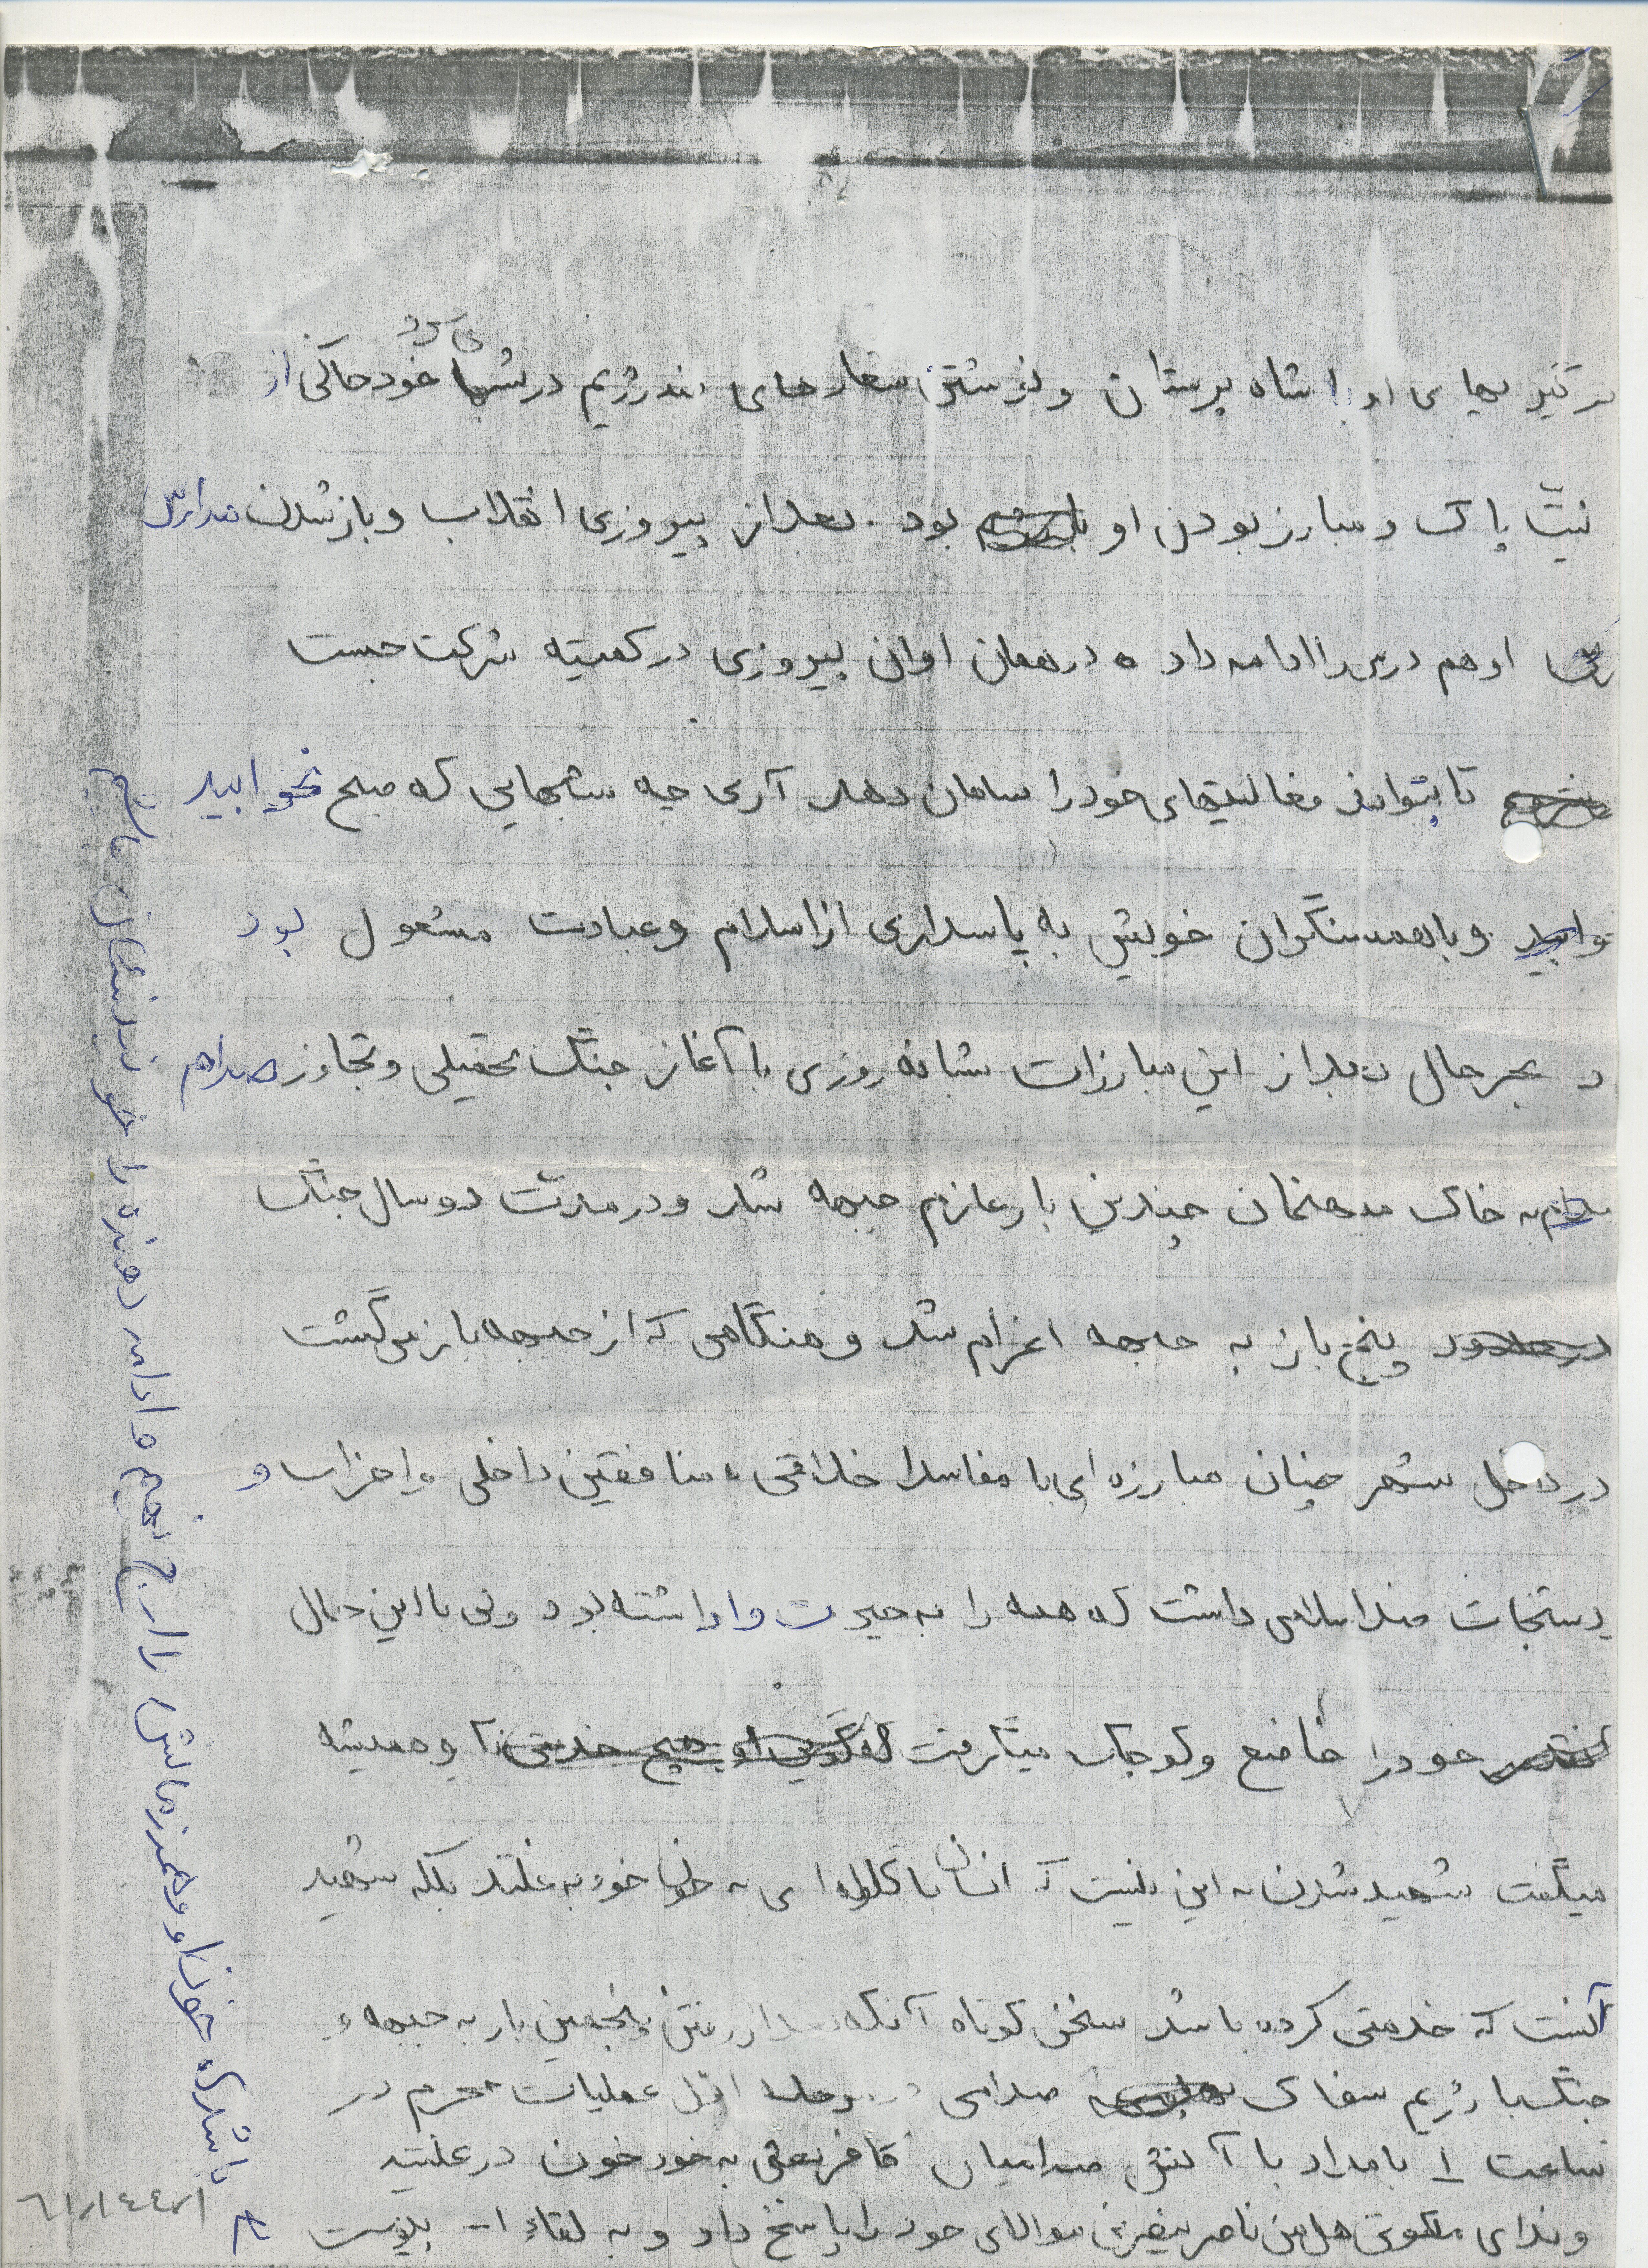 درگیریهای او با شاه پرستان و نوشتن شعارهای ضد رژیم در شبها خود حاکی از
می کرد
نیت پاک و مبارز بودن او بود. بعد از پیروزی انقلاب و باز شدن مدارس
او هم درس را ادامه داد و در همان اوان پیروزی در کمیته شرکت جست
تا بتواند فعالیتهای خود را سامان دهد آری چه شبهایی که صبح نخوابید
و با همسنگران خویش به پاسداری از اسلام و عبادت مشغول بود
و بهر حال بعد از این مبارزات شبانه روزی با آغاز جنگ تحمیلی و تجاوز صدام
به خاک میهنمان چندین بار عازم جبهه شد و در مدت دو سال جنگ
پنج بار به جبهه اعزام شد و هنگامی که از جبهه باز می گشت
در داخل شهر چنان مبارزه ای با مفاسد اخلاقی، منافقین داخلی و احزاب و
دستجات ضد اسلامی داشت که همه را به حیرت وا داشته بود ولی با این حال
خود را خاضع و کوچک میگرفت و همیشه
میگفت شهید شدن به این نیست که انسان با گلوله ای به خون خود به غلتد بلکه شهید
آنست که خدمتی کرده باشد سخن کوتاه آنکه بعد از رفتن پنجمین بار به جبهه و
جنگ با رژیم سفاک صدامی در مرحله اول عملیات محرم در
ساعت ۱ بامداد با آتش صدامیان کافر بعثی به خود خون در غلتید
و ندای ملکوتی هل من ناصر ینصرنی مولای خود را پاسخ داد و به لقاء ا... پیوست
تا باشد که خون او و همرزمانش را ارج نهیم و ادامه دهنده راه خونرنگشان باشیم